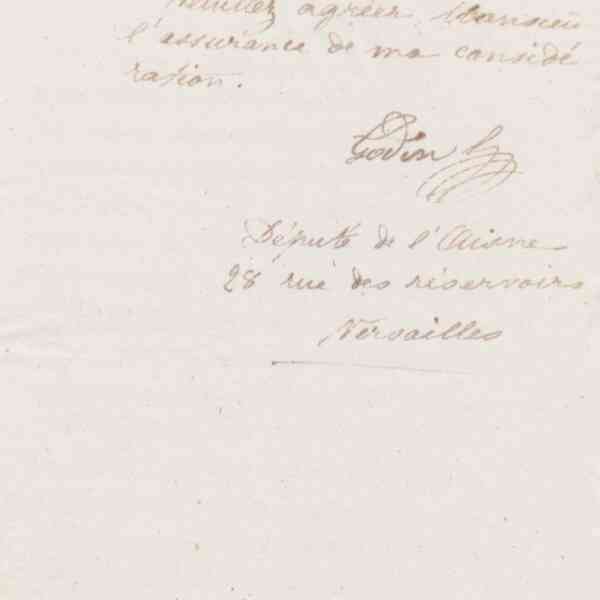 Veuillez agréer Monsieur
l'assurance de ma considé
ration.
Godin
Député de l'Aisne
28 rue des réservoirs
Versailles